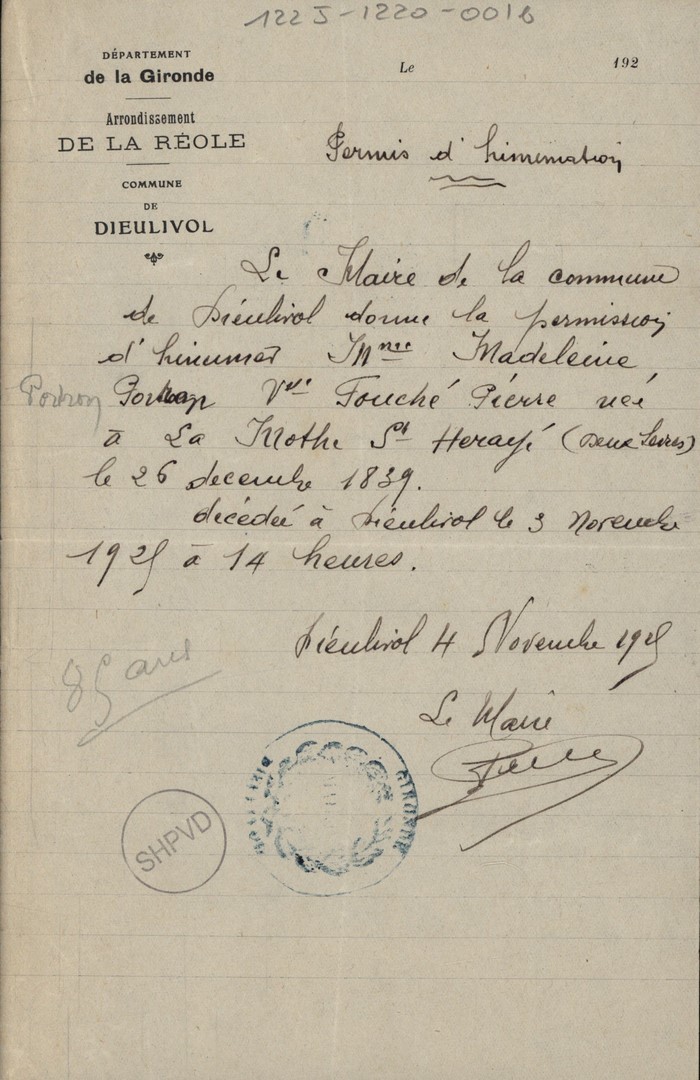 122 J-1220-001b
DÉPARTEMENT
de la Gironde
Le 192
Arrondissement
DE LA RÉOLE
COMMUNE
DE
DIEULIVOL
Permis d'hinumation
Le Maire de la commune
de Diéulivol donne la permission
d'hinumer Mme Madeleine
Portron Vve Fouché Piérre neé
à La Mothe St Herayé (Deux Sevres)
le 26 decembre 1839.
décédeé à Diéulivol le 3 Novembre
1925 à 14 heures.
Diéulivol 4 Novembre 1925
85 ans
Le Maire
GIRONDE
SHPVD